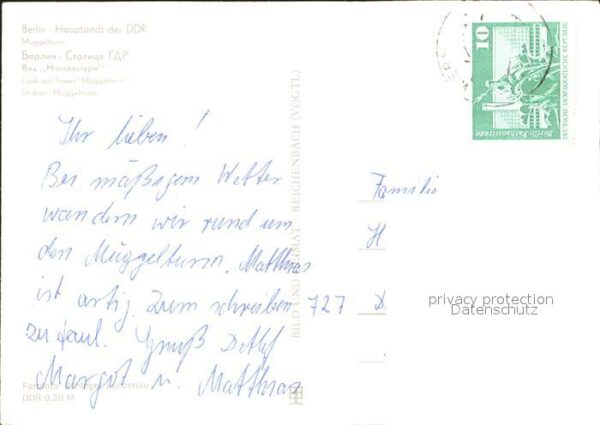 Berlin - Hauptstadt der DDR
Müggelturm
Берлин - Столица ГДР
Вид „Мюггельтурм"
Look out Tower "Müggelturm"
La tour «Müggelturm»
Ihr lieben!
Bei mäßigem Wetter
wandern wir rund um
den Müggelturm. Matthias
ist artig. Zum schreiben
zu faul. Gruß Detlef
Margot u. Matthias
DDR 0,20 M
BILD UND HEIMAT · REICHENBACH (VOGTL)
10
Berlin · Rathausstraße
DEUTSCHE DEMOKRATISCHE REPUBLIK
Familie
H
727 D
privacy protection
Datenschutz